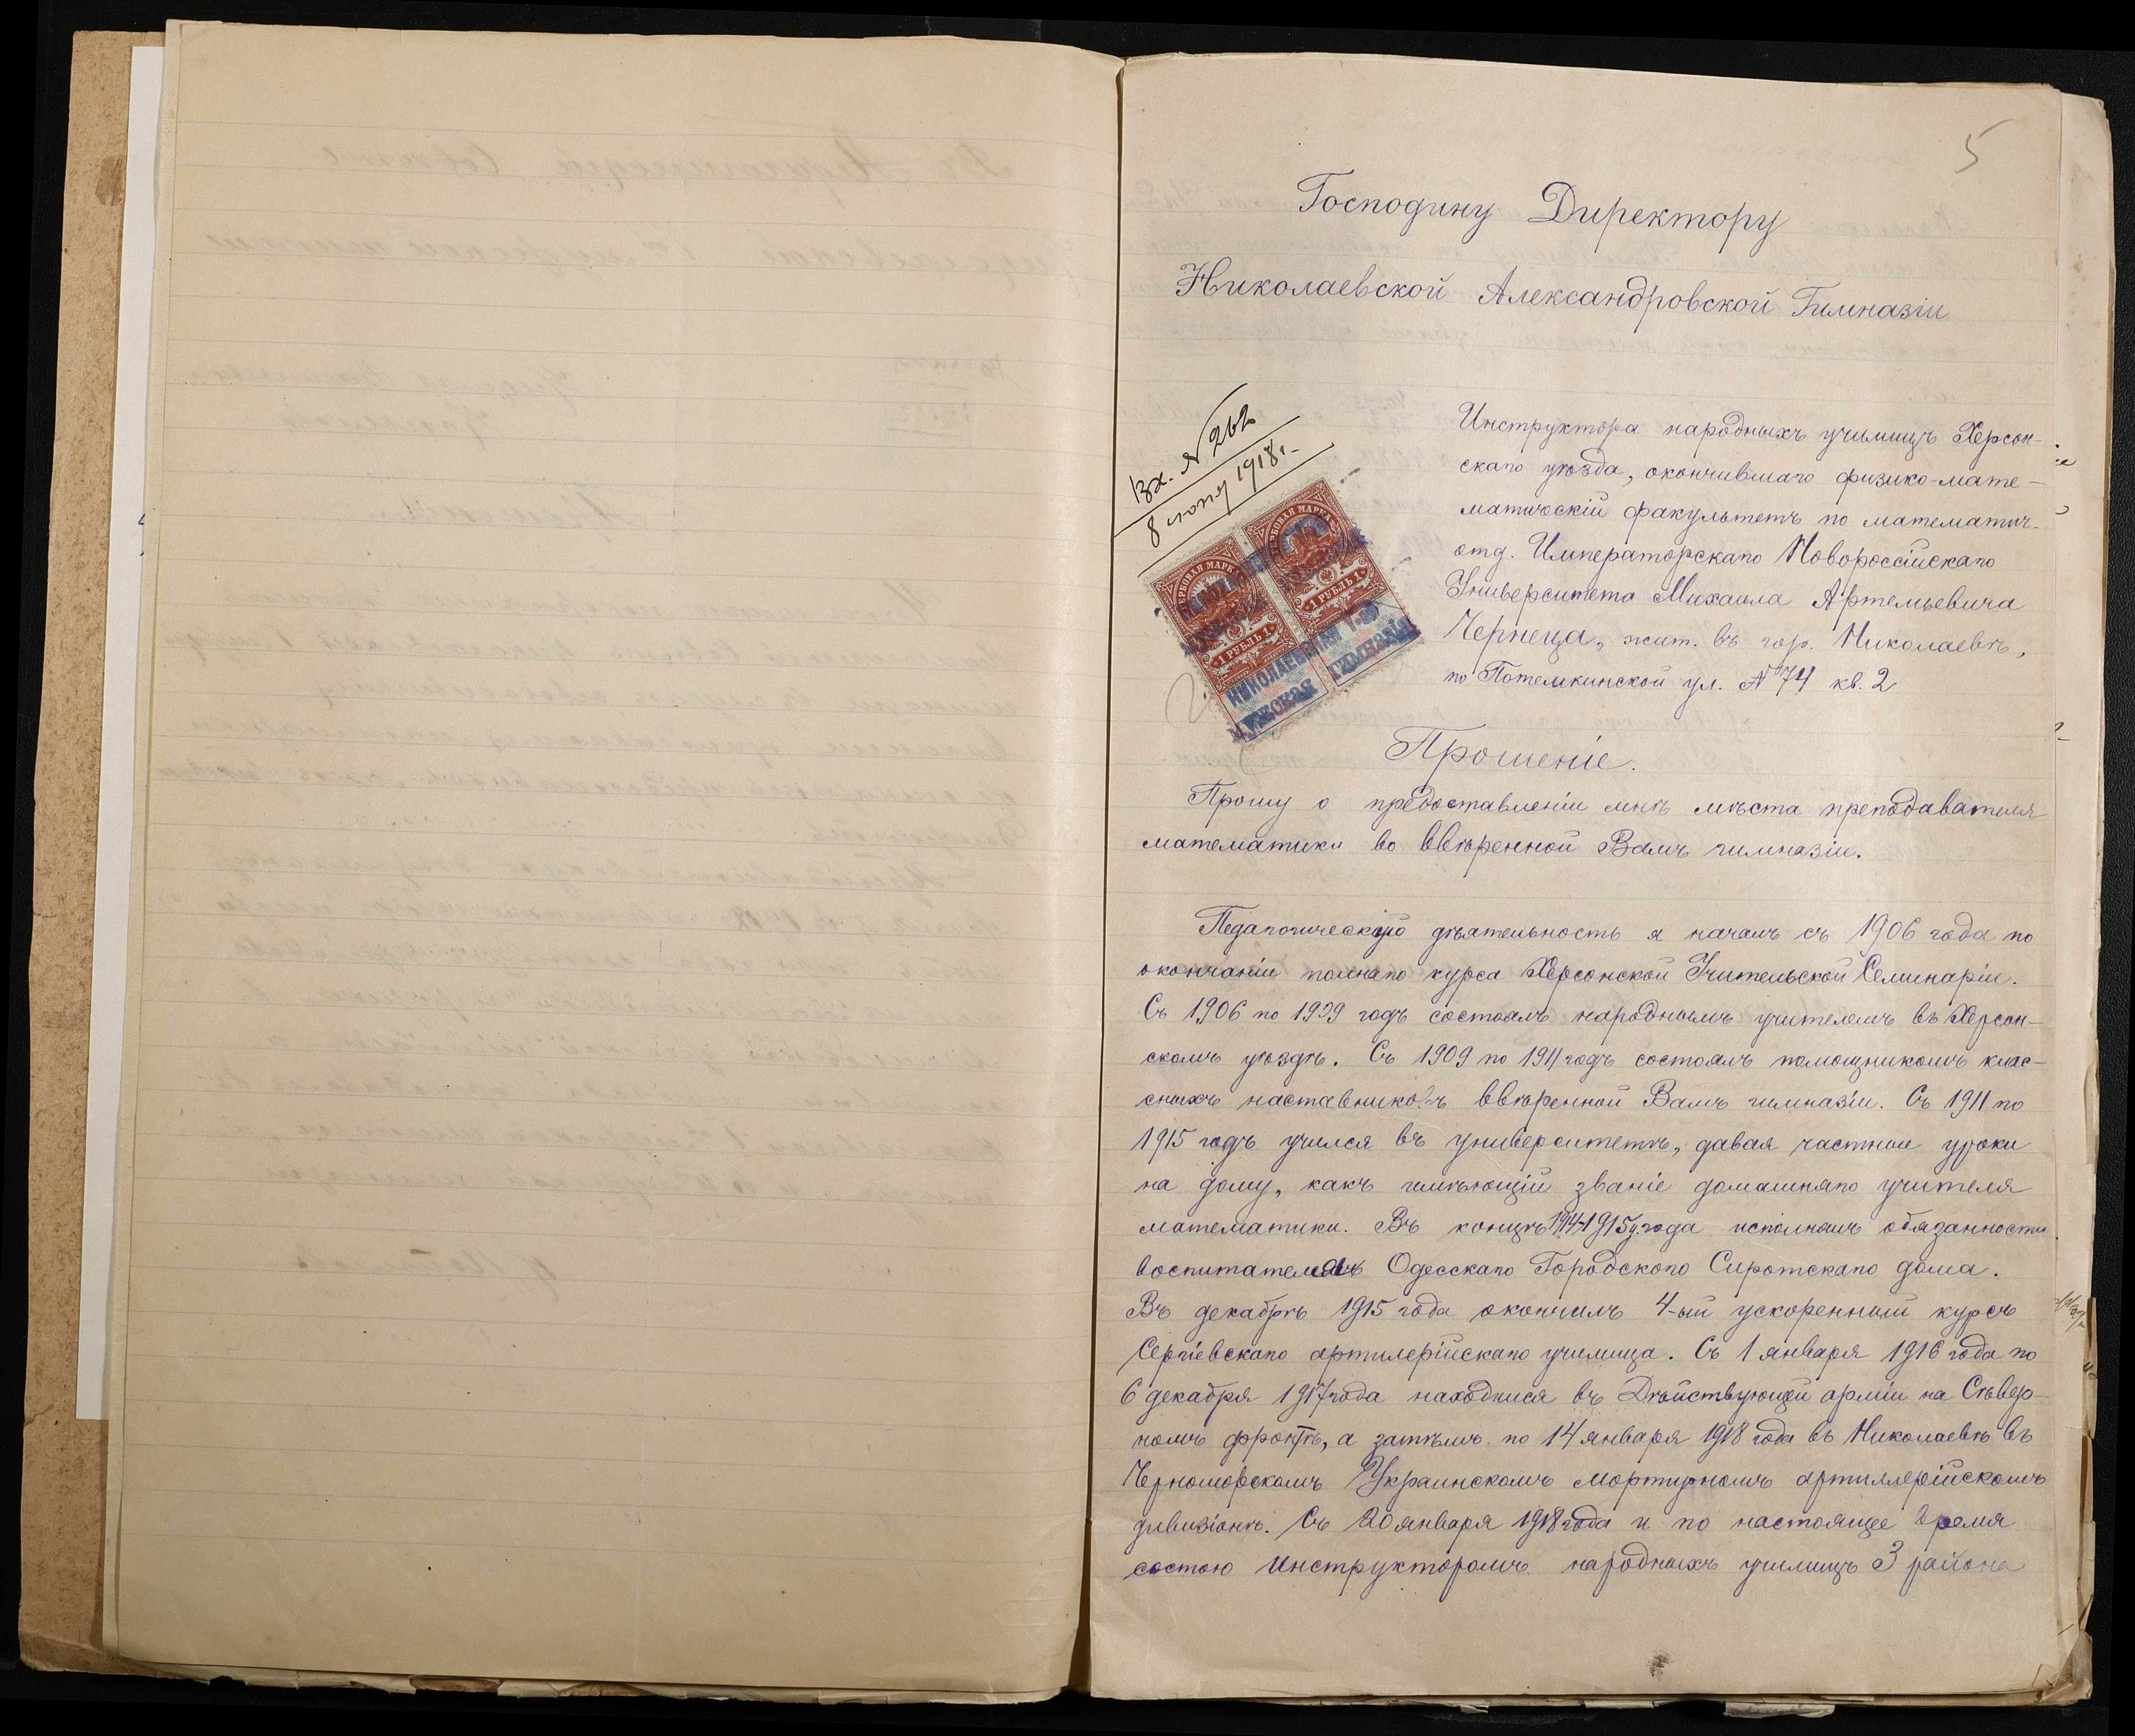 5
Господину Директору
Николаевской Александровской Гимназіи
Вх. № 262
8 іюня 1918 г.
ГЕРБОВАЯ МАРКА
1 РУБЛЬ 1
ГЕРБОВАЯ МАРКА
1 РУБЛЬ 1
НИКОЛАЕВСКАЯ 1-ая
МУЖСКАЯ ГИМНАЗІЯ
Инструктора народныхъ училищъ Херсон-
скаго уѣзда, окончившаго физико-мате-
матическій факультетъ по математич.
отд. Императорскаго Новороссійскаго
Университета Михаила Артемьевича
Чернеца, жит. въ гор. Николаевѣ,
по Потемкинской ул. № 74 кв. 2
Прошеніе.
Прошу о предоставленіи мнѣ мѣста преподавателя
математики во ввѣренной Вамъ гимназіи.
Педагогическую дѣятельность я началъ съ 1906 года по
окончаніи полнаго курса Херсонской Учительской Семинаріи.
Съ 1906 по 1909 годъ состоялъ народнымъ учителемъ въ Херсон-
скомъ уѣздѣ. Съ 1909 по 1911 годъ состоялъ помощникомъ клас-
сныхъ наставниковъ ввѣренной Вамъ гимназіи. Съ 1911 по
1915 годъ учился въ университетѣ, давая частные уроки
на дому, какъ имѣющій званіе домашняго учителя
математики. Въ концѣ 1914-1915 у. года исполнялъ обязанности
воспитателя Одесскаго Городского Сиротскаго дома.
Въ декабрѣ 1915 года окончилъ 4-ый ускоренный курсъ
Сергіевскаго артилерійскаго училища. Съ 1 января 1916 года по
6 декабря 1917 года находился въ Дѣйствующей арміи на Сѣвер-
номъ фронтѣ, а затѣмъ по 14 января 1918 года въ Николаевѣ въ
Черноморскомъ Украинскомъ мортирномъ артиллерійскомъ
дивизіонѣ. Съ 20 января 1918 года и по настоящее время
состою инструкторомъ народныхъ училищъ 3 района